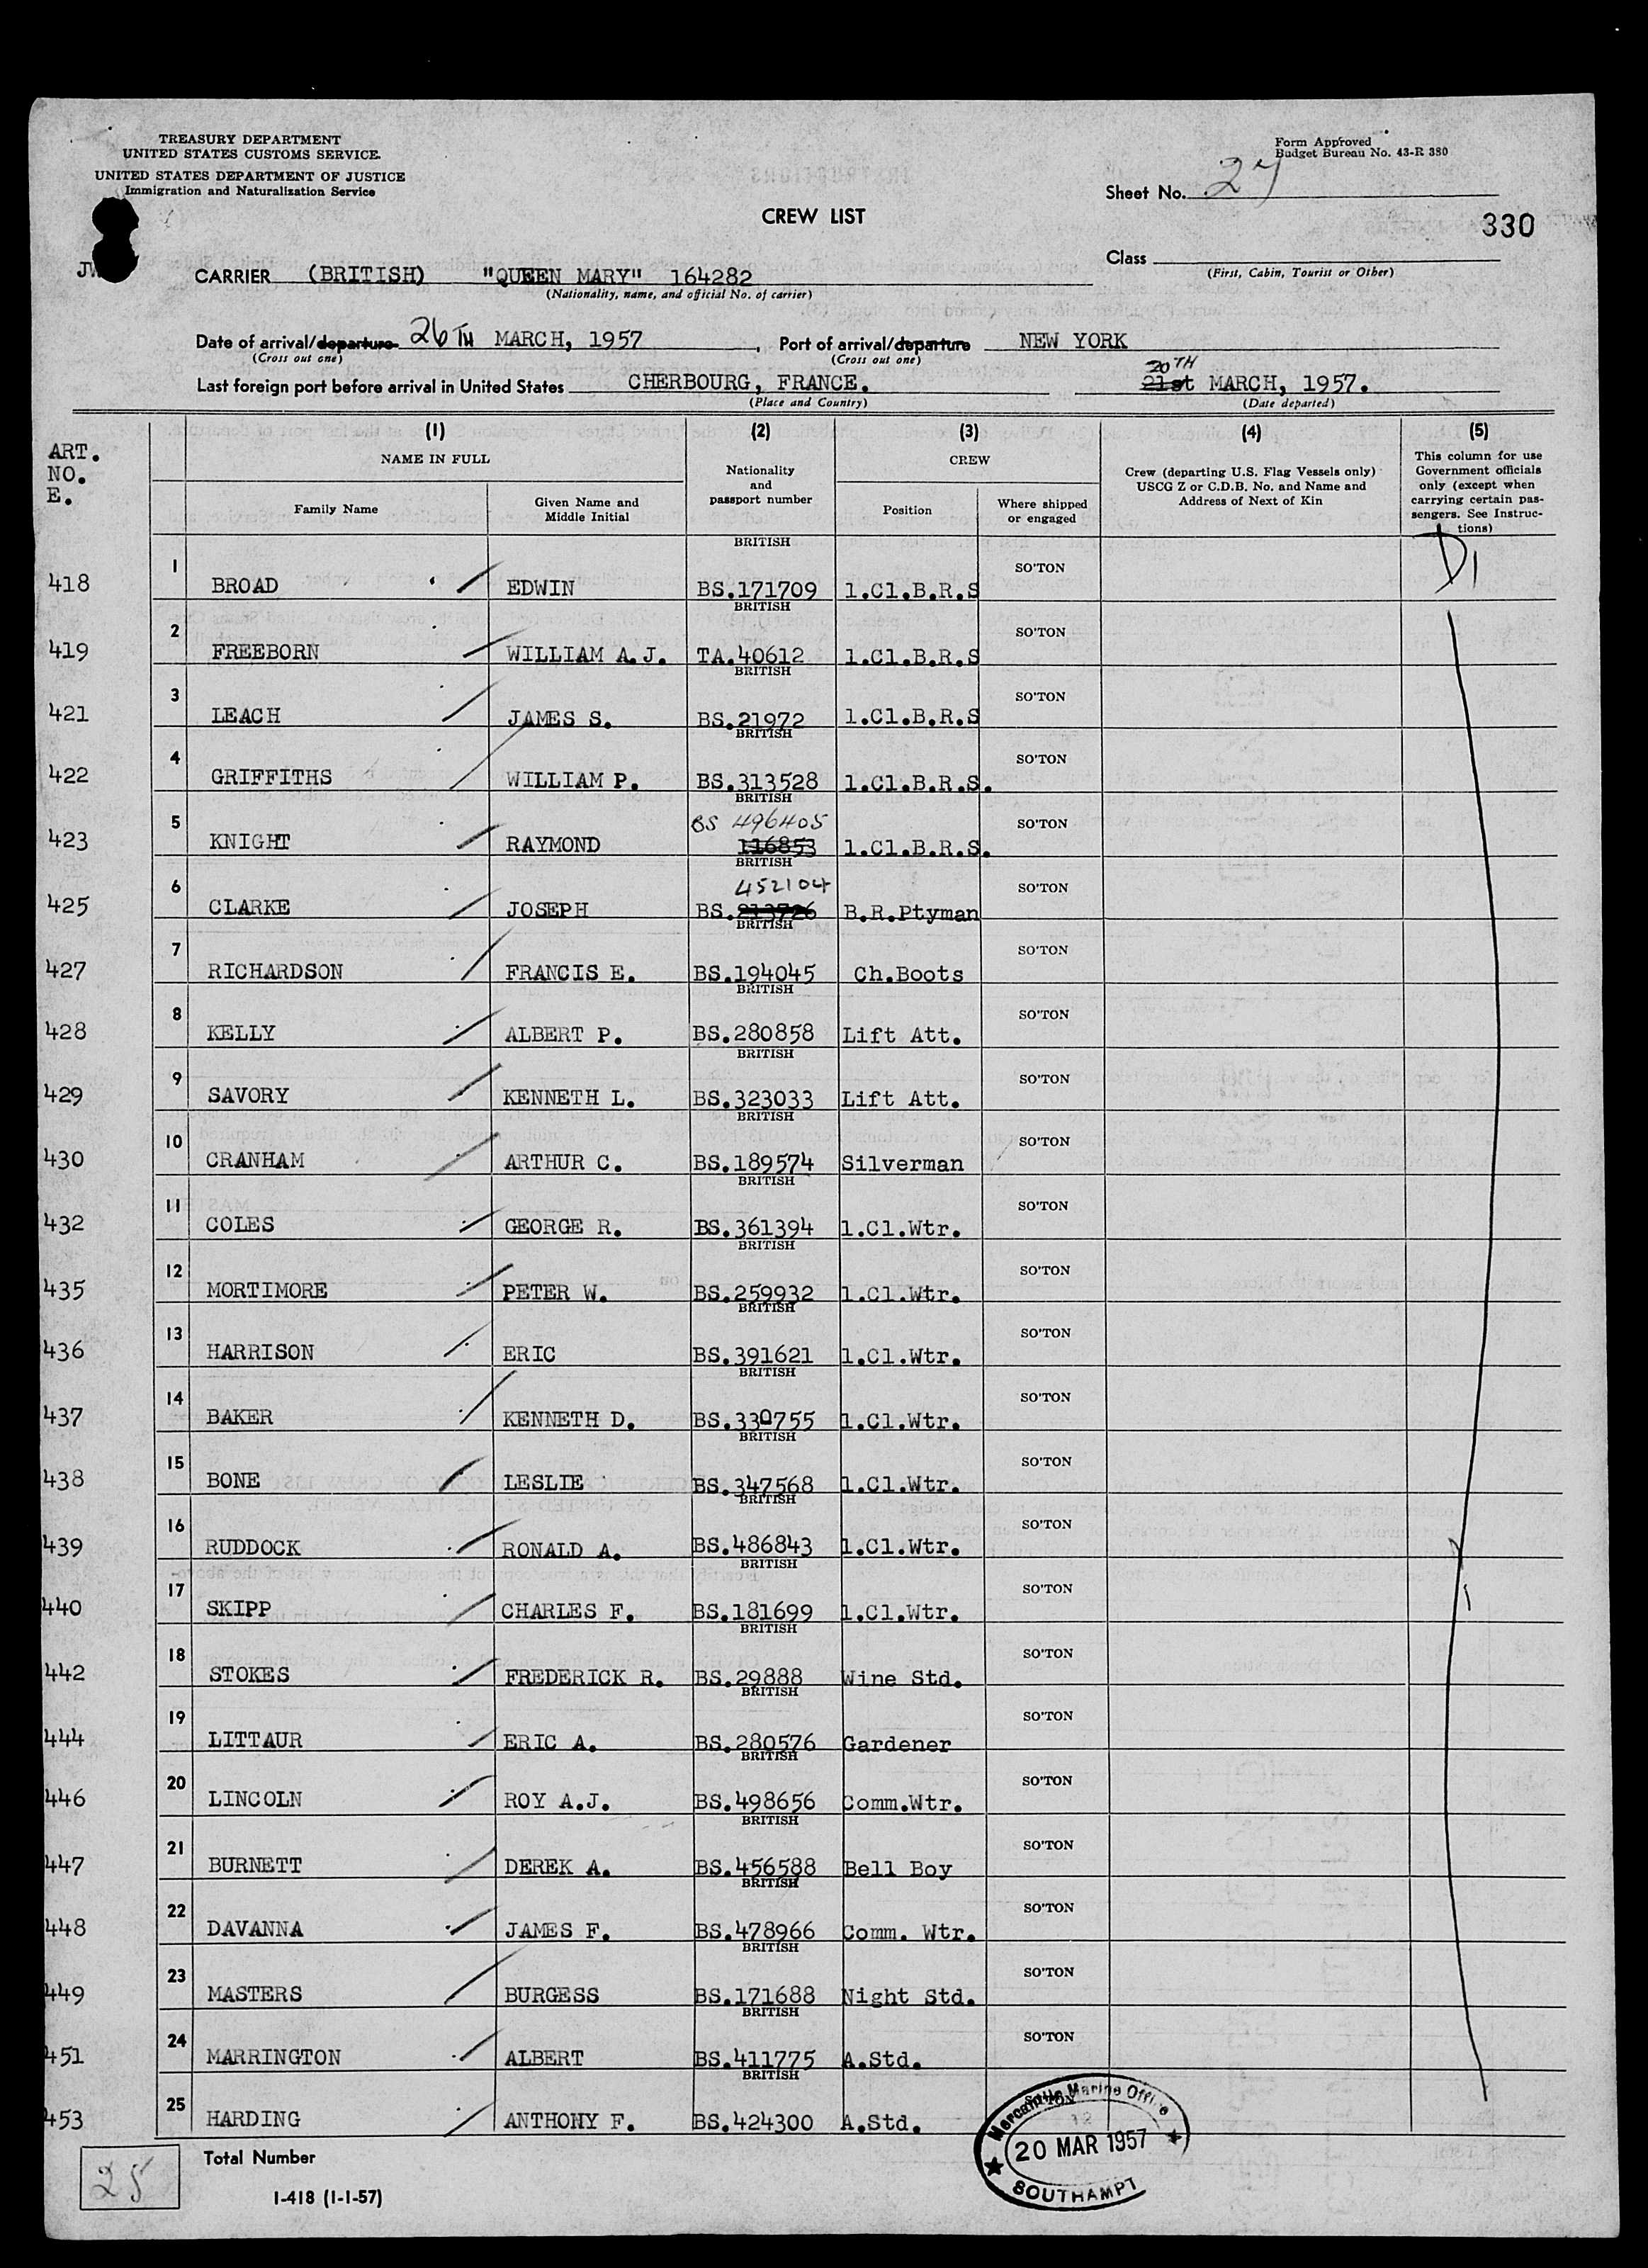 TREASURY DEPARTMENT
UNITED STATES CUSTOMS SERVICE.
UNITED STATES DEPARTMENT OF JUSTICE
Immigration and Naturalization Service
Form Approved
Budget Bureau No. 43-R 380
Sheet No. 27
CREW LIST
330
Class
(First, Cabin, Tourist or Other)
CARRIER (BRITISH) "QUEEN MARY" 164282
(Nationality, name, and official No. of carrier)
Date of arrival/departure 26TH MARCH, 1957. Port of arrival/departure NEW YORK
(Cross out one) (Cross out one)
20TH
Last foreign port before arrival in United States CHERBOURG, FRANCE. 21st MARCH, 1957.
(Place and Country) (Date departed)
ART. NO. E.
(1) (2) (3) (4) (5)
NAME IN FULL
Family Name
Given Name and Middle Initial
Nationality and passport number
CREW
Position
Where shipped or engaged
Crew (departing U.S. Flag Vessels only) USCG Z or C.D.B. No. and Name and Address of Next of Kin
This column for use Government officials only (except when carrying certain passengers. See Instructions)
D1
418 1 BROAD EDWIN BRITISH BS.171709 1.Cl.B.R.S SO'TON
419 2 FREEBORN WILLIAM A.J. BRITISH TA.40612 1.Cl.B.R.S SO'TON
421 3 LEACH JAMES S. BRITISH BS.21972 1.Cl.B.R.S SO'TON
422 4 GRIFFITHS WILLIAM P. BRITISH BS.313528 1.Cl.B.R.S. SO'TON
423 5 KNIGHT RAYMOND BRITISH BS 496405 116853 1.Cl.B.R.S. SO'TON
425 6 CLARKE JOSEPH BRITISH 452104 BS.213726 B.R.Ptyman SO'TON
427 7 RICHARDSON FRANCIS E. BRITISH BS.194045 Ch.Boots SO'TON
428 8 KELLY ALBERT P. BRITISH BS.280858 Lift Att. SO'TON
429 9 SAVORY KENNETH L. BRITISH BS.323033 Lift Att. SO'TON
430 10 CRANHAM ARTHUR C. BRITISH BS.189574 Silverman SO'TON
432 11 COLES GEORGE R. BRITISH BS.361394 1.Cl.Wtr. SO'TON
435 12 MORTIMORE PETER W. BRITISH BS.259932 1.Cl.Wtr. SO'TON
436 13 HARRISON ERIC BRITISH BS.391621 1.Cl.Wtr. SO'TON
437 14 BAKER KENNETH D. BRITISH BS.330755 1.Cl.Wtr. SO'TON
438 15 BONE LESLIE BRITISH BS.347568 1.Cl.Wtr. SO'TON
439 16 RUDDOCK RONALD A. BRITISH BS.486843 1.Cl.Wtr. SO'TON
440 17 SKIPP CHARLES F. BRITISH BS.181699 1.Cl.Wtr. SO'TON
442 18 STOKES FREDERICK R. BRITISH BS.29888 Wine Std. SO'TON
444 19 LITTAUR ERIC A. BRITISH BS.280576 Gardener SO'TON
446 20 LINCOLN ROY A.J. BRITISH BS.498656 Comm.Wtr. SO'TON
447 21 BURNETT DEREK A. BRITISH BS.456588 Bell Boy SO'TON
448 22 DAVANNA JAMES F. BRITISH BS.478966 Comm. Wtr. SO'TON
449 23 MASTERS BURGESS BRITISH BS.171688 Night Std. SO'TON
451 24 MARRINGTON ALBERT BRITISH BS.411775 A.Std. SO'TON
453 25 HARDING ANTHONY F. BRITISH BS.424300 A.Std. SO'TON
Mercantile Marine Office
12
20 MAR 1957
SOUTHAMPT
25 Total Number
I-418 (1-1-57)